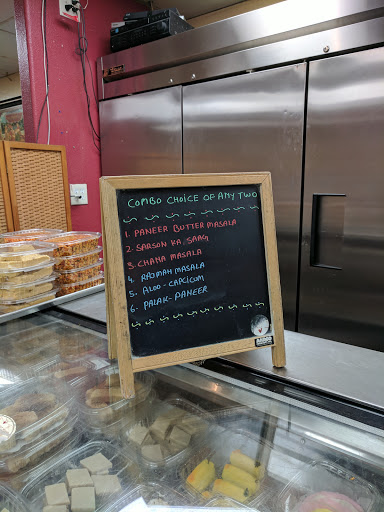 COMBO CHOICE OF ANY TWO
1. PANEER BUTTER MASALA
2. SARSON KA SAAG
3. CHANA MASALA
4. RAJMAH MASALA
5. ALOO - CAPCICUM
6. PALAK - PANEER